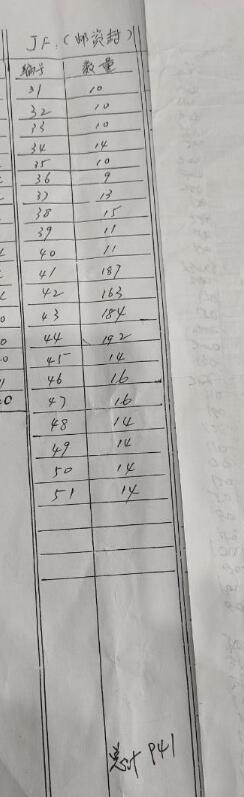 JF.(邮资封)
编号 数量
31 10
32 10
33 10
34 14
35 10
36 9
37 13
38 15
39 11
40 11
41 187
42 163
43 184
44 192
45 14
46 16
47 16
48 14
49 14
50 14
51 14
总计 941